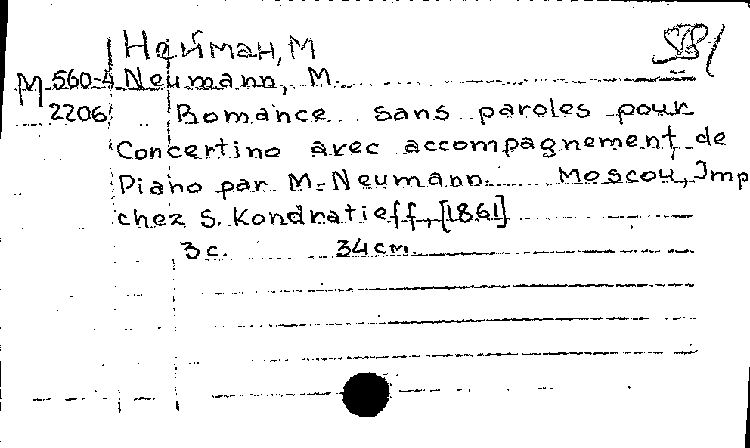 Нейман, М
М 560-4 Neumann, M.
2206 Romance sans paroles pour
Concertino avec accompagnement de
Piano par M. Neumann. Moscou, Imp
chez S. Kondratieff, [1861]
3 с. 34 см.